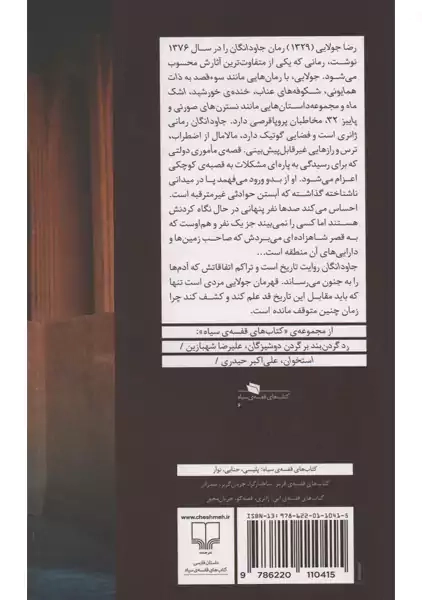 رضا جولایی (۱۳۲۹) رمان جاودانگان را در سال ۱۳۷۶
نوشت، رمانی که یکی از متفاوت‌ترین آثارش محسوب
می‌شود. جولایی، با رمان‌هایی مانند سوءقصد به ذات
همایونی، شکوفه‌های عناب، خنده‌ی خورشید، اشک
ماه و مجموعه‌داستان‌هایی مانند نسترن‌های صورتی و
پاییز ۳۲، مخاطبان پروپاقرصی دارد. جاودانگان رمانی
ژانری است و فضایی گوتیک دارد، مالامال از اضطراب،
ترس و رازهایی غیرقابل‌پیش‌بینی. قصه‌ی مأموری دولتی
که برای رسیدگی به پاره‌ای مشکلات به قصبه‌ی کوچکی
اعزام می‌شود. او از بدو ورود می‌فهمد پا در میدانی
ناشناخته گذاشته که آبستن حوادثی غیرمترقبه است.
احساس می‌کند صدها نفر پنهانی در حال نگاه کردنش
هستند اما کسی را نمی‌بیند جز یک نفر و هم‌اوست که
به قصر شاهزاده‌ای می‌بردش که صاحب زمین‌ها و
دارایی‌های آن منطقه است...
جاودانگان روایت تاریخ است و تراکم اتفاقاتش که آدم‌ها
را به جنون می‌رساند. قهرمان جولایی مردی است تنها
که باید مقابل این تاریخ قد علم کند و کشف کند چرا
زمان چنین متوقف مانده است.
از مجموعه‌ی «کتاب‌های قفسه‌ی سیاه»:
رد گردن‌بند بر گردن دوشیزگان، علیرضا شهبازین /
استخوان، علی‌اکبر حیدری /
کتاب‌های قفسه‌ی سیاه
کتاب‌های قفسه‌ی سیاه: پلیسی، جنایی، نوار
ISBN-13: 978-622-01-1041-5
www.cheshmeh.ir
داستان فارسی
کتاب‌های قفسه‌ی سیاه
9 786220 110415